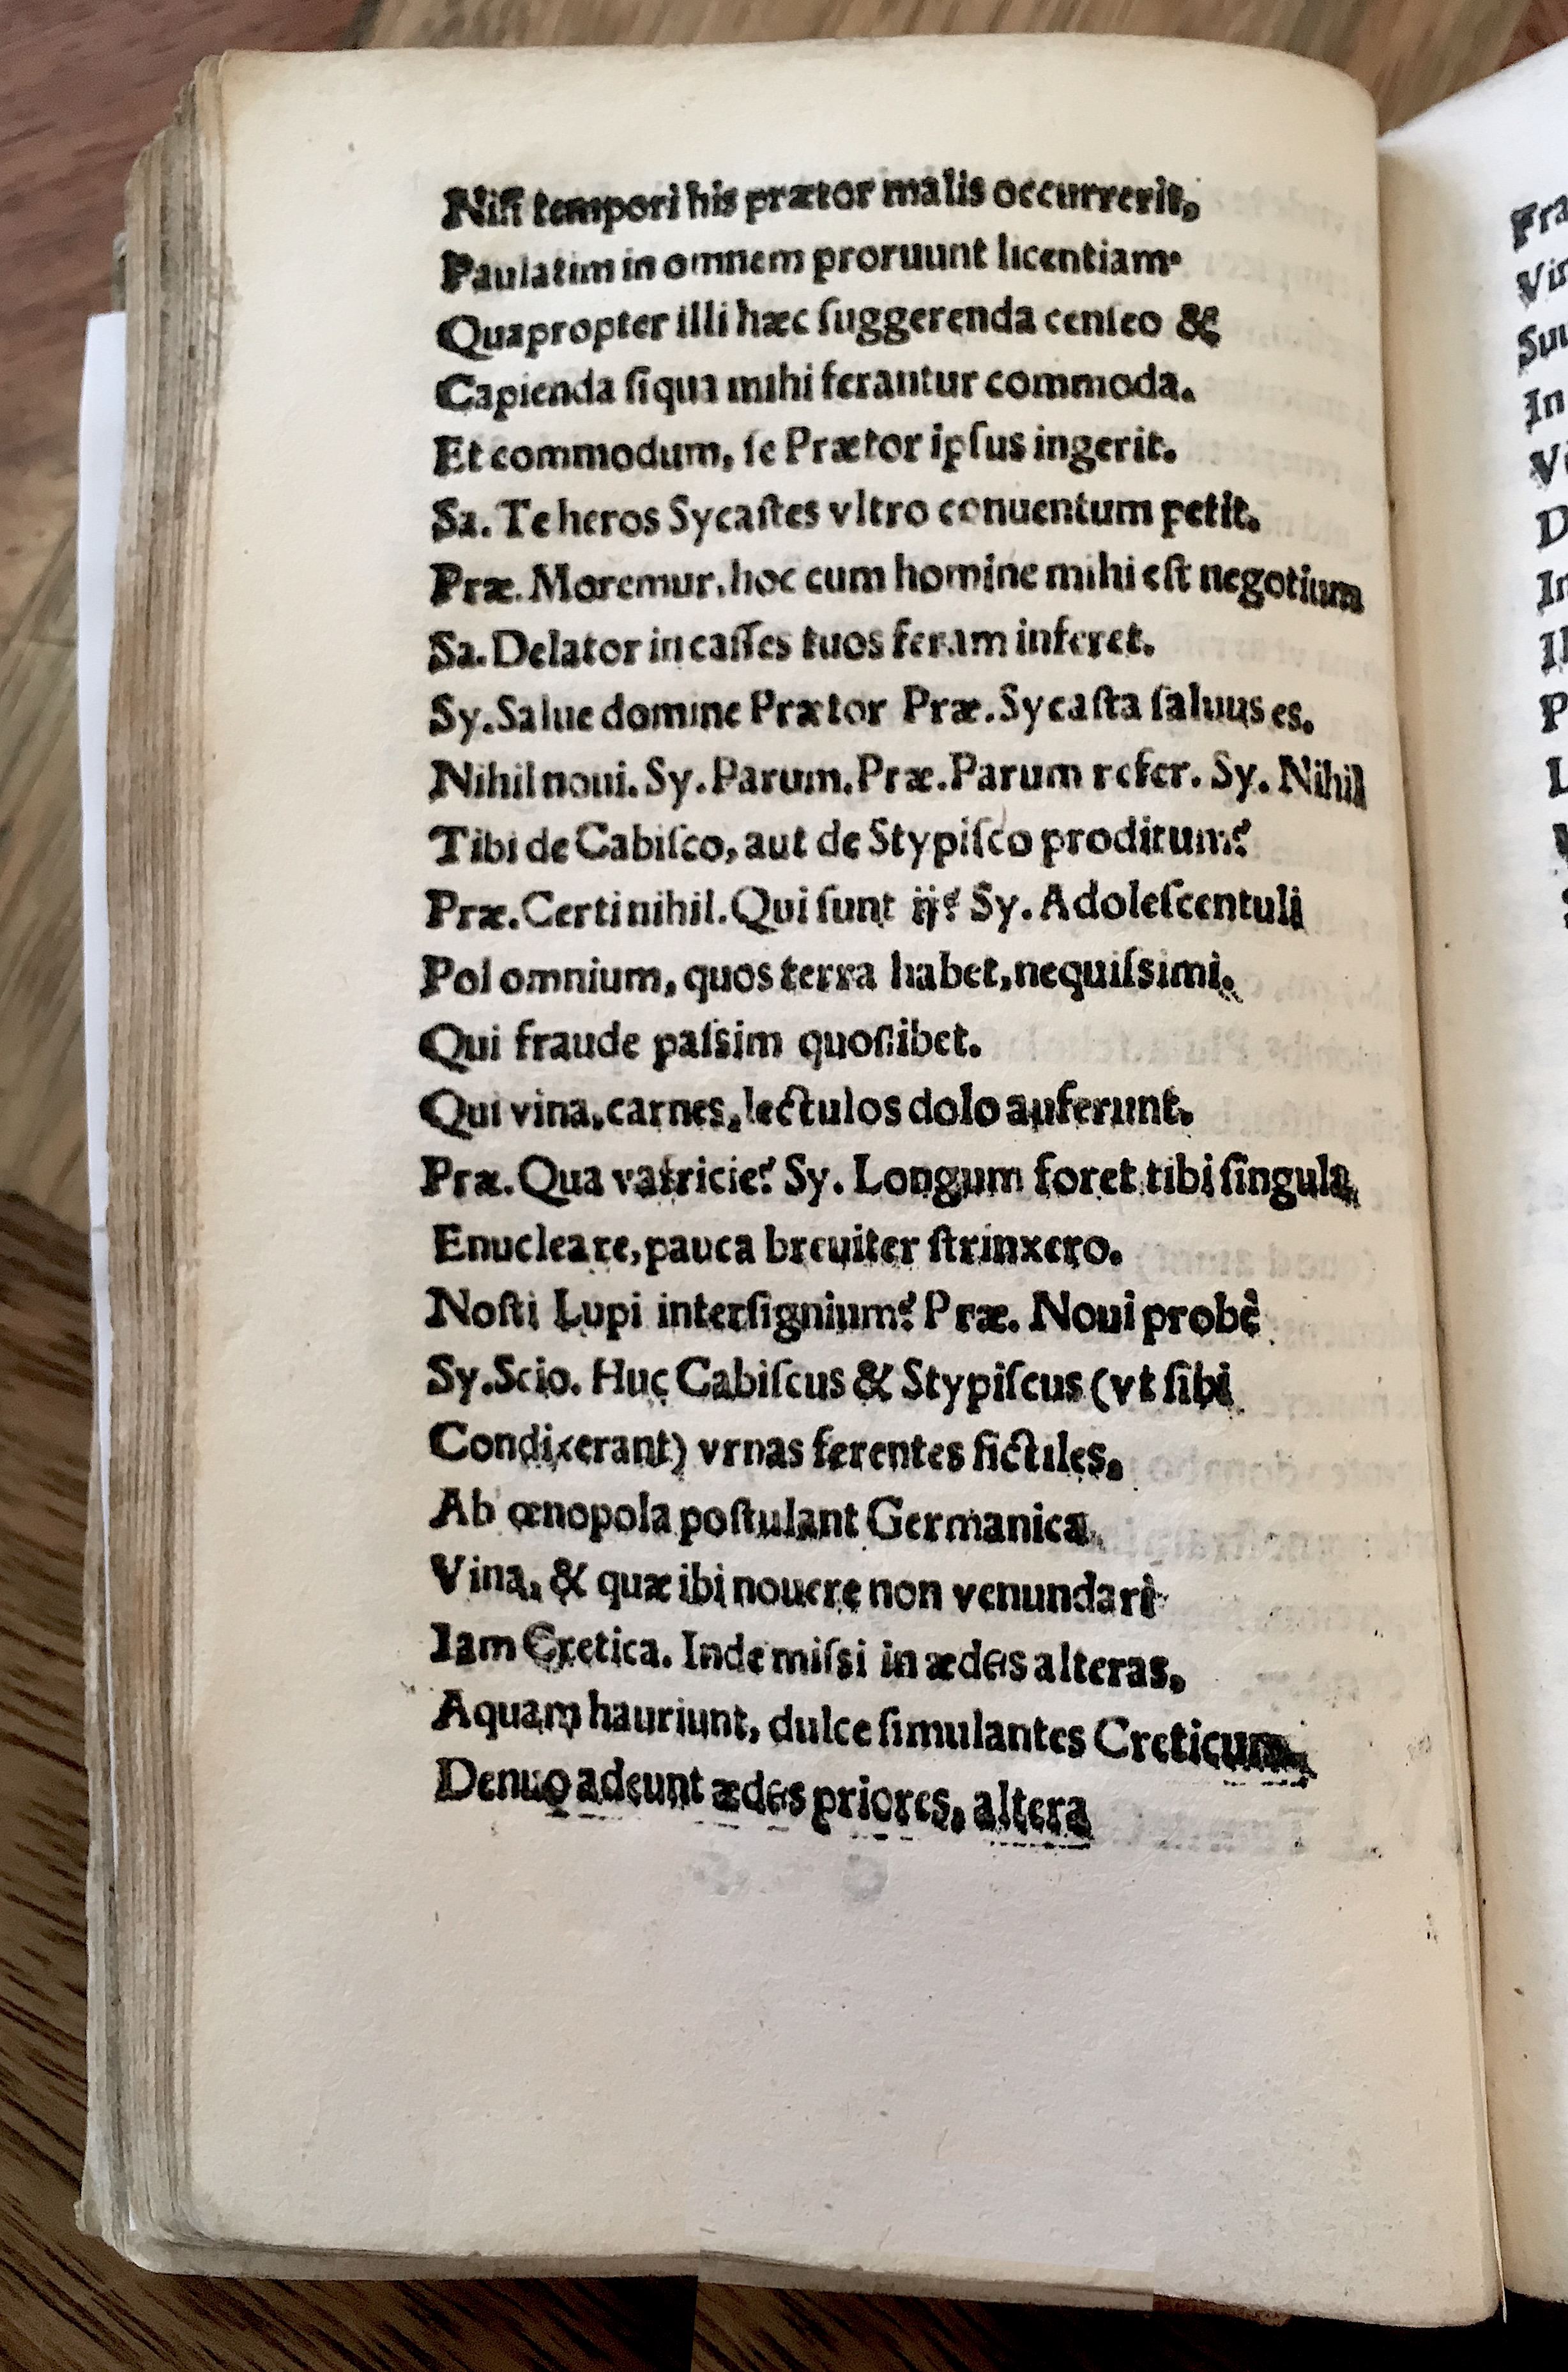 Niſi tempori his prætor malis occurrerit,
Paulatim in omnem proruunt licentiam.
Quapropter illi hæc ſuggerenda cenſeo &
Capienda ſiqua mihi ferantur commoda.
Et commodum, ſe Prætor ipſus ingerit.
Sa. Te heros Sycaſtes vltro conuentum petit.
Præ. Moremur. hoc cum homine mihi eſt negotium
Sa. Delator in caſſes tuos feram inferet.
Sy. Salue domine Prætor Præ. Sycaſta ſaluus es.
Nihil noui. Sy. Parum. Præ. Parum refer. Sy. Nihil
Tibi de Cabiſco, aut de Stypiſco proditum?
Præ. Certi nihil. Qui ſunt ij? Sy. Adoleſcentuli
Pol omnium, quos terra habet, nequiſsimi.
Qui fraude paſsim quoſlibet.
Qui vina, carnes, lectulos dolo auferunt.
Præ. Qua vafricie? Sy. Longum foret tibi ſingula
Enucleare, pauca breuiter ſtrinxero.
Noſti Lupi interſignium? Præ. Noui probè
Sy. Scio. Huc Cabiſcus & Stypiſcus (vt ſibi
Condixerant) vrnas ferentes fictiles,
Ab œnopola poſtulant Germanica
Vina, & quæ ibi nouere non venundari
Iam Cretica. Inde miſsi in ædes alteras,
Aquam hauriunt, dulce ſimulantes Creticum,
Denuo adeunt ædes priores, altera
Fra
Vir
In